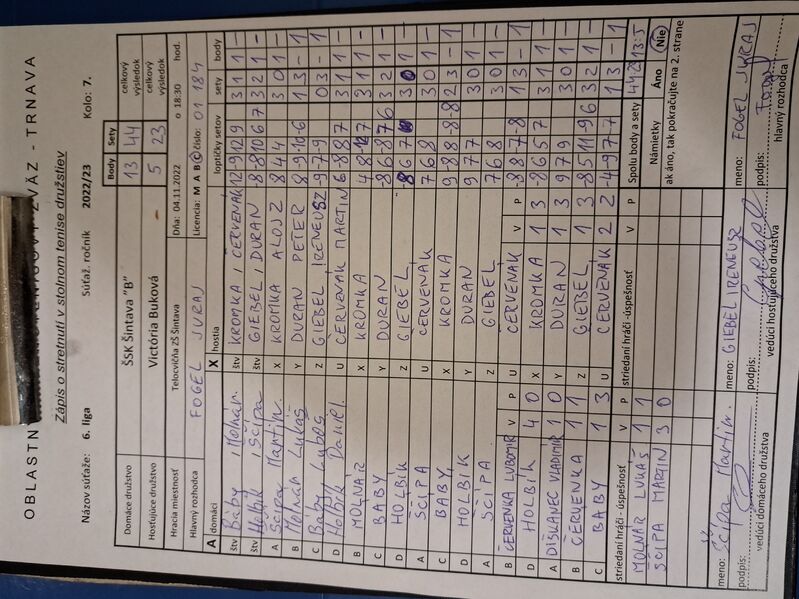 OBLASTN ZVÄZ - TRNAVA
Zápis o stretnutí v stolnom tenise družstiev
Názov súťaže: 6. liga Súťaž. ročník 2022/23 Kolo: 7.
Body Sety
Domáce družstvo ŠSK Šintava "B" 13 44 celkový výsledok
Hosťujúce družstvo Victória Buková 5 23 celkový výsledok
Hracia miestnosť Telocvičňa ZŠ Šintava Dňa: 04.11.2022 o 18:30 hod.
Hlavný rozhodca FOGEL JURAJ Licencia: M A B C číslo: 01 184
A domáci X hostia loptičky setov sety body
štv Báby, Molnár štv KROMKA, ČERVENÁK 12 -9 12 9 3 1 1 -
štv Holbík, Ščípa štv GIEBEL, DURAN -8 8 10 6 7 3 2 1 -
A Ščípa Martin X KROMKA ALOJZ 8 4 4 3 0 1 -
B Molnár Lukáš Y DURAN PETER 8 -9 -10 -6 1 3 - 1
C Báby Ľuboš Z GIEBEL IRENEUSZ -9 -7 -9 0 3 - 1
D Holbík Daniel U ČERVENÁK MARTIN 6 -8 8 7 3 1 1 -
B MOLNÁR X KROMKA 4 8 -12 7 3 1 1 -
C BABY Y DURAN -8 6 -8 7 6 3 2 1 -
D HOLBÍK Z GIEBEL 3 1 -
A ŠČÍPA U ČERVENÁK 7 6 8 3 0 1 -
C BABY X KROMKA 9 -8 8 -8 -8 2 3 - 1
D HOLBÍK Y DURAN 9 7 7 3 0 1 -
A ŠČÍPA Z GIEBEL 7 6 8 3 0 1 -
B ČERVENKA ĽUBOMÍR V P U ČERVENÁK V P -8 8 -7 -8 1 3 - 1
D HOLBÍK 4 0 X KROMKA 1 3 -8 6 5 7 3 1 1 -
A DIŠLANEC VLADIMÍR 1 0 Y DURAN 1 3 9 7 9 3 0 1 -
B ČERVENKA 1 1 Z GIEBEL 1 3 -8 5 11 -9 6 3 2 1 -
C BABY 1 3 U ČERVENÁK 2 2 -4 9 -7 -7 1 3 - 1
striedaní hráči - úspešnosť V P striedaní hráči -úspešnosť V P Spolu body a sety 13:5
MOLNÁR LUKÁŠ 1 1 Námietky Áno Nie
ŠČÍPA MARTIN 3 0 ak áno, tak pokračujte na 2. strane
meno: Ščípa Martin meno: GIEBEL IRENEUSZ meno: FOGEL JURAJ
podpis: podpis: podpis:
vedúci domáceho družstva vedúci hosťujúceho družstva hlavný rozhodca